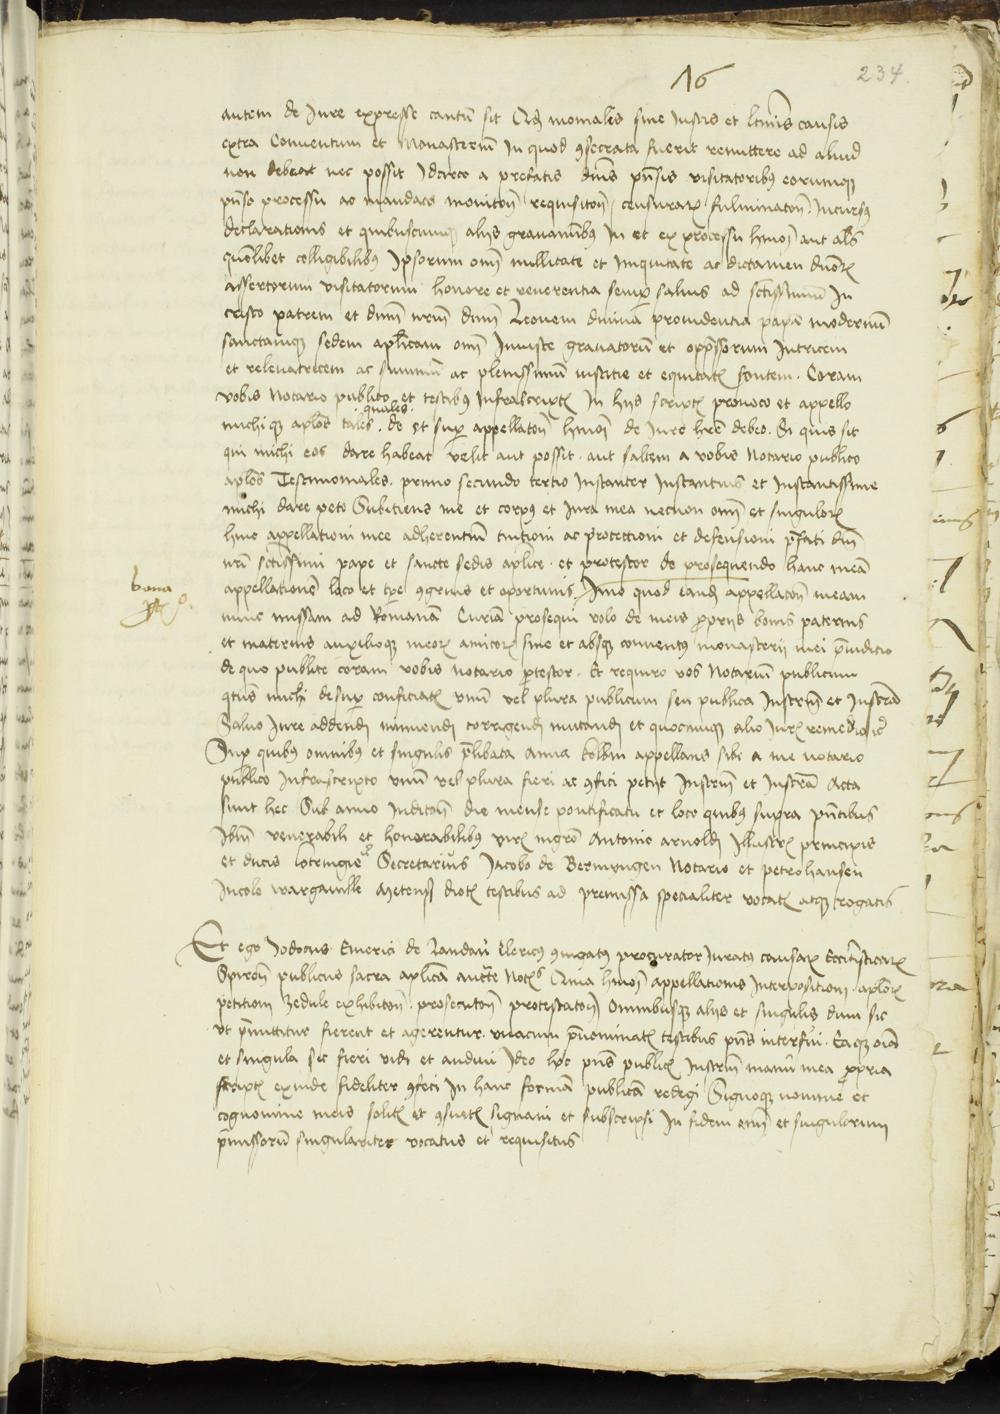 16
234
autem de Jure expresse cautū sit Qd moniales sine Justis et ltimis causis
extra Conuentum et Monasteriū In quod ꝯsecrata fuerit remittere ad aliud
non debeat nec possit Idcirco a prefatis dnis pnsis visitatoribꝰ eorumqꝫ
pnso processu ac mandatis moniton requisiton censuraꝝ fulminaton Incursꝰ
declarationis et quibuscunqꝫ alijs grauaminibꝰ In et ex processu hmoi aut als
quolibet colligibilibꝰ Ipsorum oim nullitate et Iniquitate ac dictamen duoꝝ
assertorum visitatorum honore et reuerentia semp saluis ad sctissimum In
cristo patrem et dnm nrm dnm Leonem diuina prouidentia papā modernū
sanctamqꝫ sedem aplicam oim Iniuste grauatorū et oppssorum Jutricem
et releuatricem ac summā ac plenissimū iusticie et equitatꝭ fontem . Coram
vobis Notario publico et testibꝰ Infrascriptꝭ In hijs scriptꝭ prouoco et appello
michiqꝫ aplos tales . quales . de et sup appellaton hmoi de Jure hre debeo . Si quis sit
qui michi eos dare habeat velit aut possit . aut saltem a vobis Notario publico
aplos Testimoniales . primo secundo tertio Instanter Instantius et Instantissime
michi dare peto Subitiens me et corpꝰ et Iura mea necnon oim et singuloꝝ
huic appellationi mee adherentiū tuitioni ac protectioni et defensioni pfati dni
nri sctissimi pape et sancte sedis aplice . et protestor de prosequendo hanc meā
appellationē loco et tpe ꝯgruis et oportunis . Imo quod eandē appellacon meam
bona
nunc missam ad Romanā Curiā prosequi volo de meis ꝓprijs bonis paternis
et maternis auxilioqꝫ meoꝝ amicoꝝ sine et absqꝫ conuentꝰ monasterij mei pͥiuditio
de quo publice coram vobis notario ꝓtestor . Et requiro vos Notariū publicum
qtus michi desup conficiatꝭ vnū vel plura publicum seu publica Instrm et Instra
Saluo Jure addendi minuendi corrigendi mutandi et quocunqꝫ alio Jurꝭ remedio
Sup quibꝰ omnibus et singulis plibata Anna appellans sibi a me notario
publico Infrascripto vnū vel plura fieri ac ꝯfici petijt Instrm et Instra Acta
sunt hec Sub anno Inditon die mense pontificatu et loco quibꝰ supra pntibus
Ibm venerabili et honorabilibꝰ virꝭ mgro Antonio arnoldi Illustrꝭ principis
et ducis Lotringie Secretarius Jacobo de Bermyngen Notario et petro hansen
Incole wargaville Metens diotꝭ testibus ad premissa specialiter vocatꝭ atqꝫ rogatis
Et ego Jodocus Emerici de Landaū Clericꝰ ꝯiugatꝰ procurator Juratꝰ causaꝝ Ecclisticaꝝ
Spiren publicus sacra aplica aucte Notꝭ Quia hmoi appellationis Interposition aploꝝ
petitioni Zedule exhibiton prosecuton protestaton Omnibusqꝫ alijs et singulis dum sic
vt pmittitur fierent et agerentur . vnacum pnominatꝭ testibus pns interfui . Eaqꝫ oia
et singula sic fieri vidi et audiui Ideo hoc pns publicū Instrm manu mea ꝓpria
scriptꝭ exinde fideliter ꝯfeci In hanc formā publicā redegi Signoqꝫ nomine et
cognomine meis solitꝭ et ꝯsuetꝭ signaui et subscripsi In fidem oim et singulorum
pmissorū singulariter vocatus et requisitus